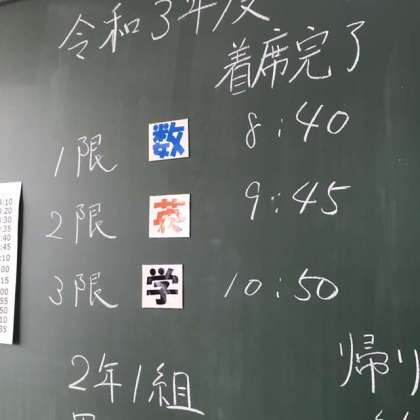 令和3年度
着席完了
1限 数 8:40
2限 英 9:45
3限 学 10:50
2年1組
帰り